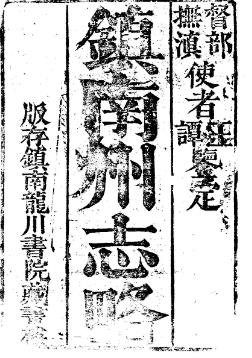 督部
撫滇使者 譚鑒定
鎮南州志略
版存鎮南龍川書院